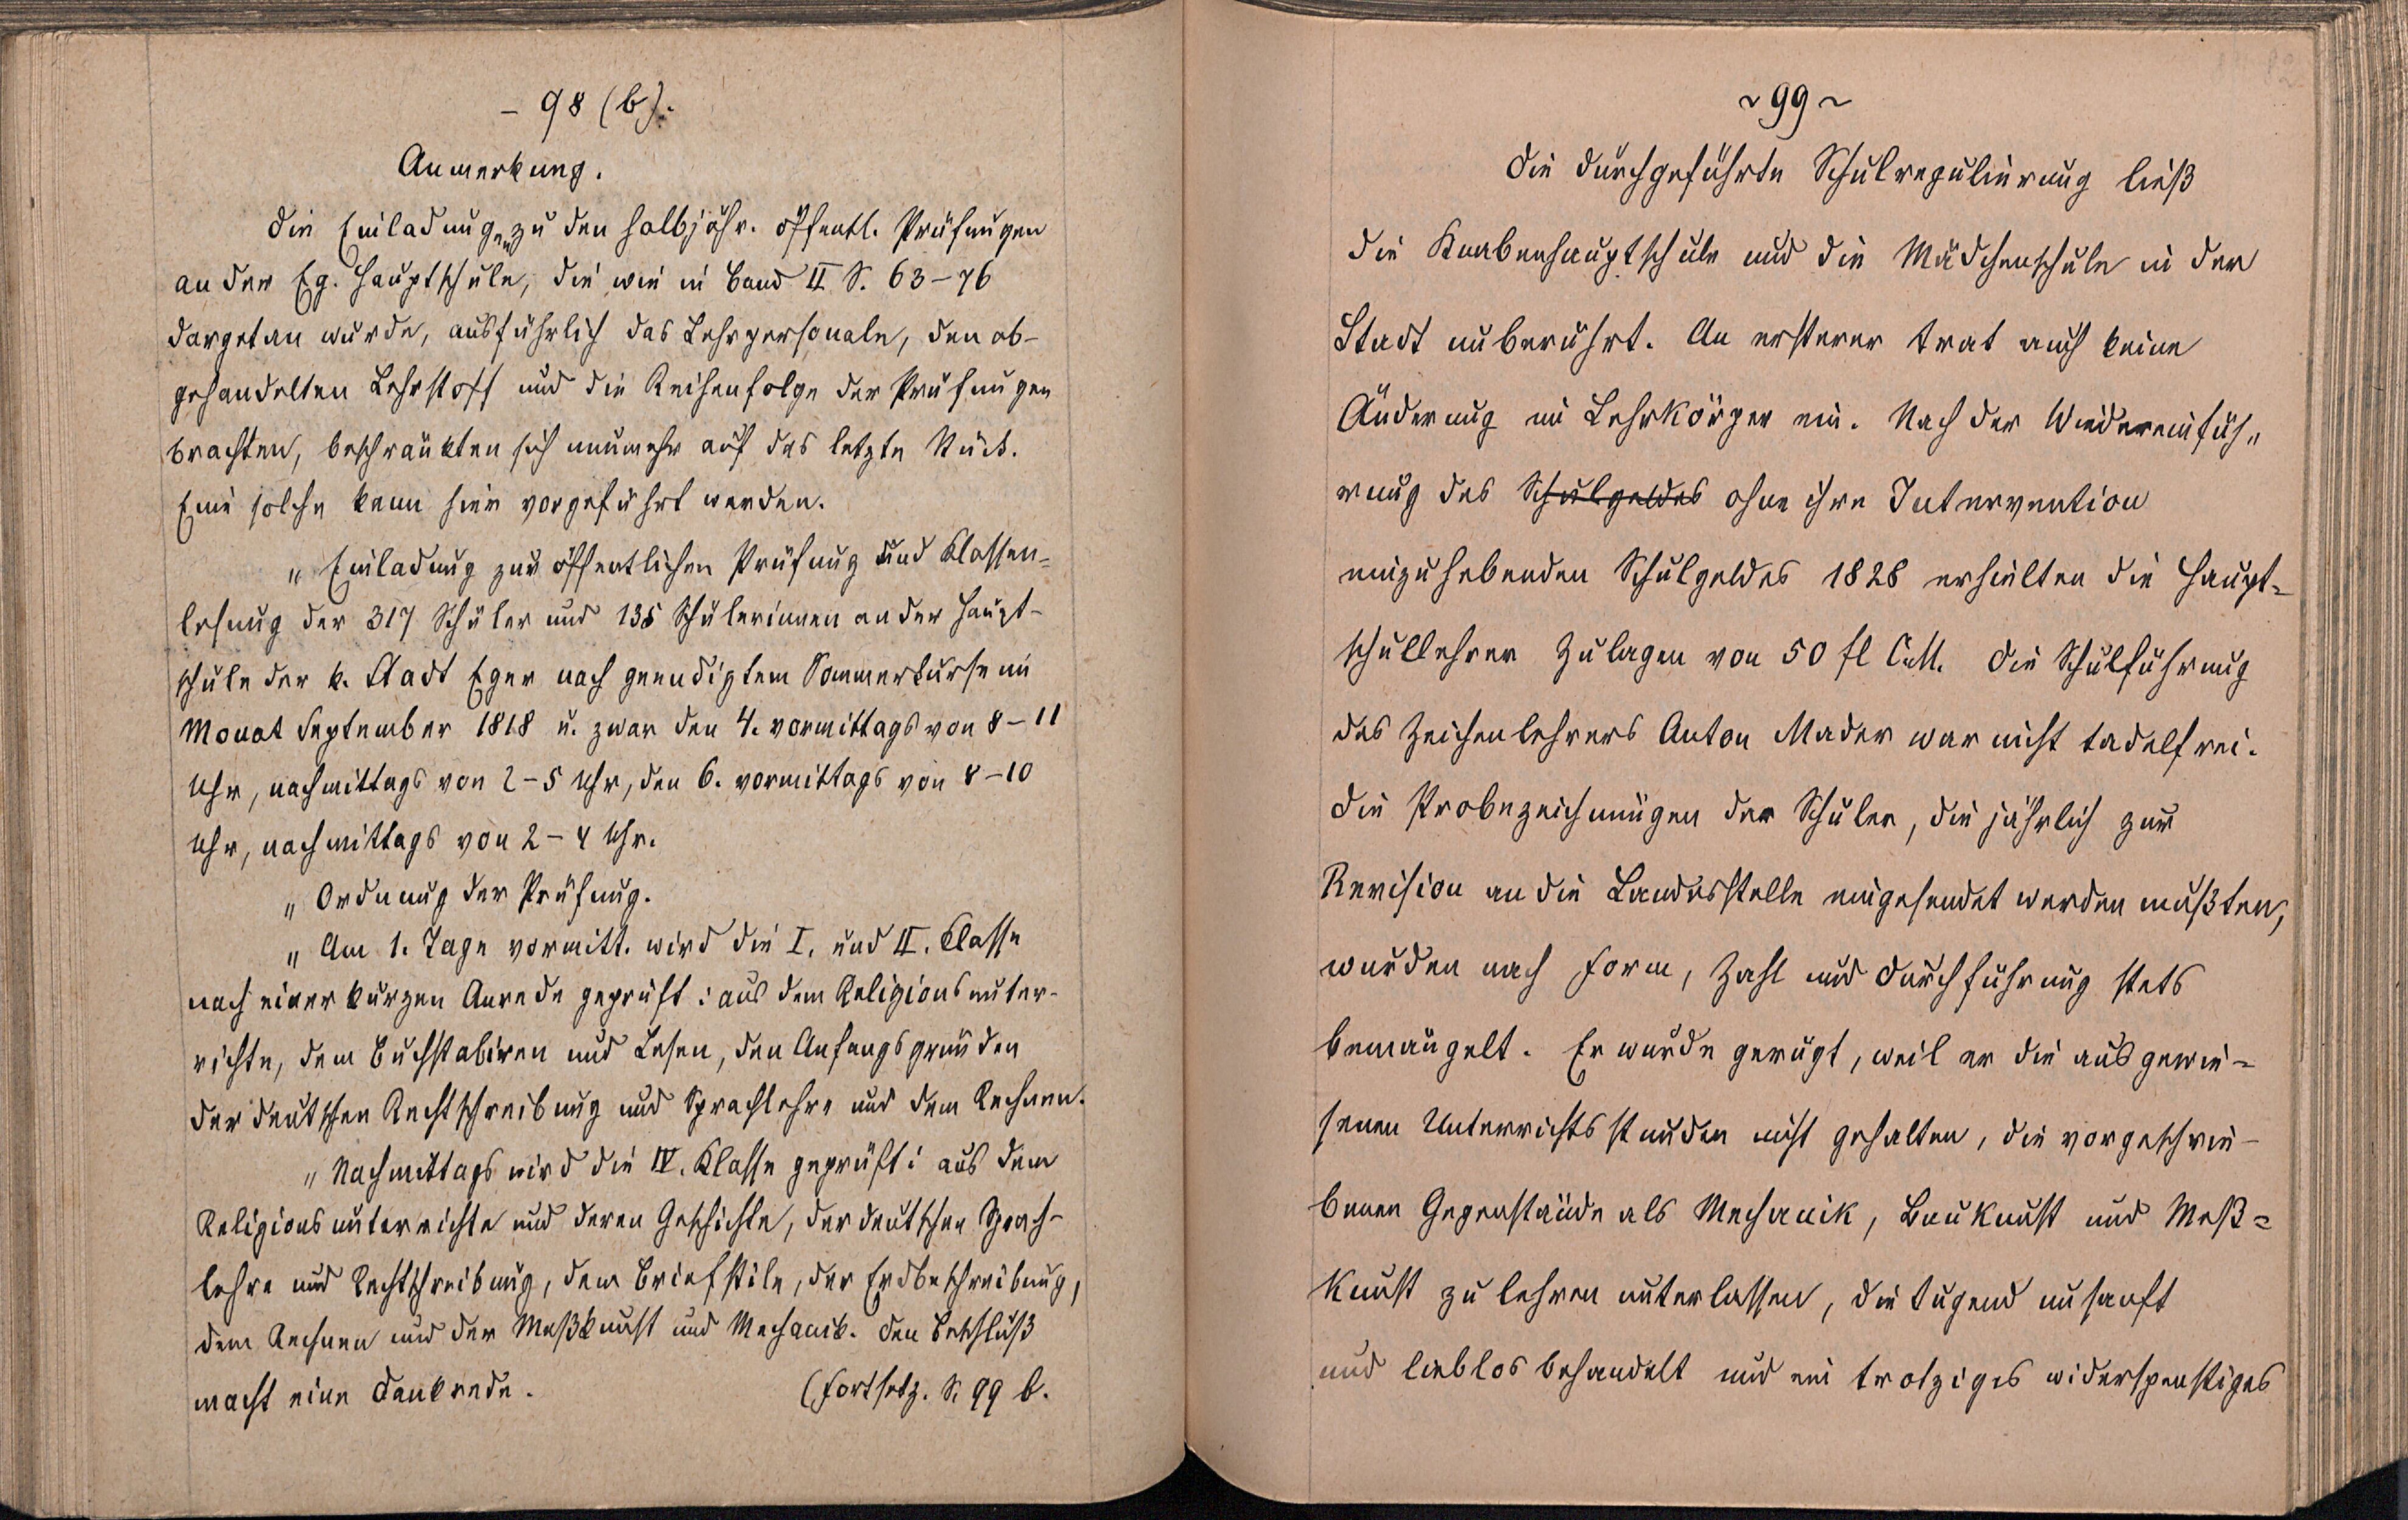 - 98 (b).
Anmerkung.
Die Einladungen zu den halbjähr. öffentl. Prüfungen
an der Eg. Hauptschule, die wie in Band II S. 63-76
dargetan wurde, ausführlich das Lehrpersonale, den ab-
gehandelten Lehrstoff und die Reihenfolge der Prüfungen
brachten, beschränkten sich nunmehr auf das letzte Stück.
Eine solche kann hier vorgeführt werden.
„Einladung zur öffentlichen Prüfung und Klassen-
lesung der 317 Schüler und 135 Schülerinnen an der Haupt-
schule der k. Stadt Eger nach geendigtem Sommerkurse im
Monat September 1818 u. zwar den 4. vormittags von 8-11
Uhr, nachmittags von 2-5 Uhr, den 6. vormittags von 8-10
Uhr, nachmittags von 2-4 Uhr.
„Ordnung der Prüfung.
„Am 1. Tage vormitt. wird die I. und II. Classe
nach einer kurzen Anrede geprüft: aus dem Religionsunter-
richte, dem Buchstabiren und Lesen, den Anfangsgründen
der deutschen Rechtschreibung und Sprachlehre und dem Rechnen.
„Nachmittags wird die IV. Klasse geprüft: aus dem
Religionsunterrichte und deren Geschichte, der deutschen Sprach-
lehre und Rechtschreibung, dem Briefstile, der Erdbeschreibung,
dem Rechnen und der Meßkunst und Mechanik. Den Beschluß
macht eine Dankrede. (Fortsetz. S. 99 b.
~ 99 ~
Die durchgeführte Schulregulierung ließ
die Knabenhauptschule und die Mädchenschule in der
Stadt unberührt. An ersterer trat auch keine
Änderung im Lehrkörper ein. Nach der Wiedereinfüh„
rung des Schulgeldes ohne ihre Intervention
einzuhebenden Schulgeldes 1828 erhielten die Haupt-
schullehrer Zulagen von 50 fl C.M. Die Schulführung
des Zeichenlehrers Anton Mader war nicht tadelfrei.
Die Probezeichnungen der Schüler, die jährlich zur
Revision an die Landesstelle eingesendet werden mußten,
wurden nach Form, Zahl und Durchführung stets
bemängelt. Er wurde gerügt, weil er die ausgewie-
senen Unterrichtsstunden nicht gehalten, die vorgeschrie-
benen Gegenstände als Mechanik, Baukunst und Meß-
kunst zu lehren unterlassen, die Jugend unsanft
und lieblos behandelt und ein trotziges widerspenstiges